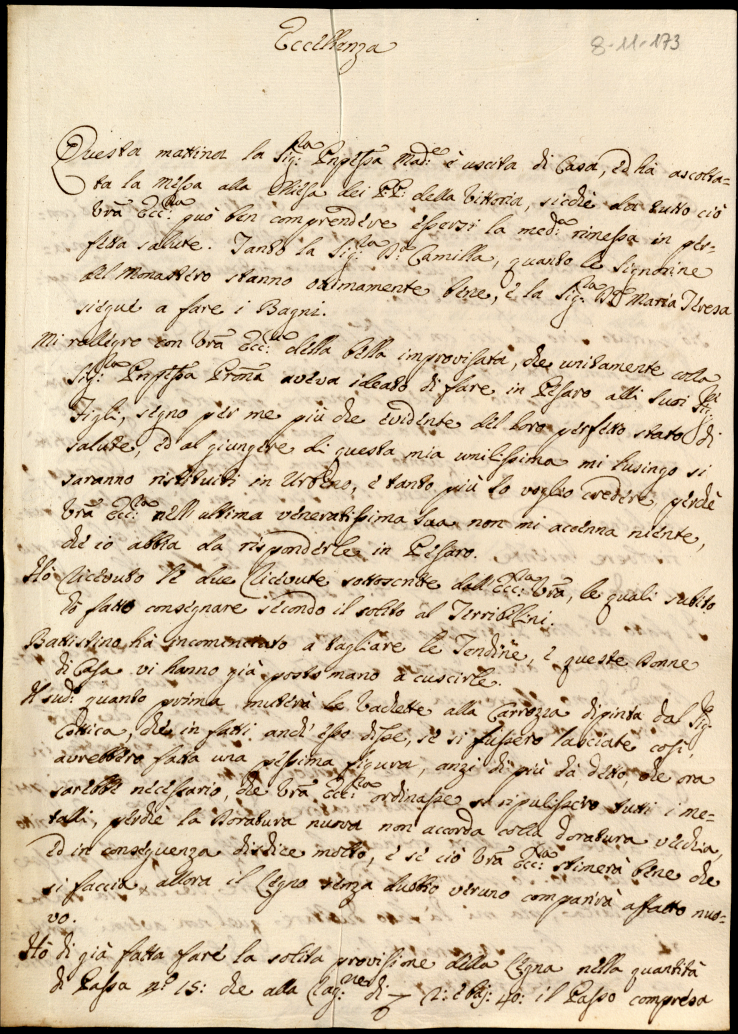 Eccellenza
8-11-173
Questa mattina la Sig:ra Pnpessa Mad:e è uscita di Casa, ed hà ascolta=
ta la Messa alla Chiesa dei PP. della Vittoria, sicchè da tutto ciò
Vrã Ecc:za può ben comprendere essersi la med:e rimessa in per=
fetta salute. Tanto la Sig:ra D: Camilla, quanto le Signorine
del Monastero stanno ottimamente bene, e la Sig:ra D: Maria Teresa
siegue a fare i Bagni.
Mi rallegro con Vrã Ecc:za della bella improvisata, che unitamente colla
Sig:ra Pnpessa Prona aveva ideato di fare in Pesaro alli suoi Sig:ri
Figli, segno per me più che evidente del loro perfetto stato di
salute, ed al giungere di questa mia umilissima mi lusingo si
saranno restituiti in Urbino, e tanto più lo voglio credere, perchè
Vrã Ecc:za nell'ultima veneratissima sua non mi accenna niente,
che io abbia da risponderle in Pesaro.
Hò riceuto le due riceute sottoscritte dall'Ecc:za Vrã, le quali subito
hò fatto consegnare secondo il solito al Terribilini.
Battistino hà incominciato a tagliare le Tendine, e queste Donne
di Casa vi hanno già posto mano a cuscirle.
Il sud: quanto prima muterà le Vachette alla Carrozza dipinta dal Sig:
Cottica, che in fatti anch'esso disse, se si fussero lasciate così,
avrebbero fatta una pessima figura, anzi di più hà detto, che ora
sarebbe necessario, che Vrã Ecc:za ordinasse si ripulissero tutti i me=
talli, perchè la Doratura nuova non accorda colla doratura vecchia,
ed in conseguenza disdice molto, e se ciò Vrã Ecc:za stimerà bene che
si faccia, allora il Legno senza dubbio veruno comparirà affatto nuo=
vo.
Hò di già fatta fare la solita provisione della Legna nella quantità
di Passa n.º 15: che alla rag:ne di 2: e baj: 40: il Passo compresa